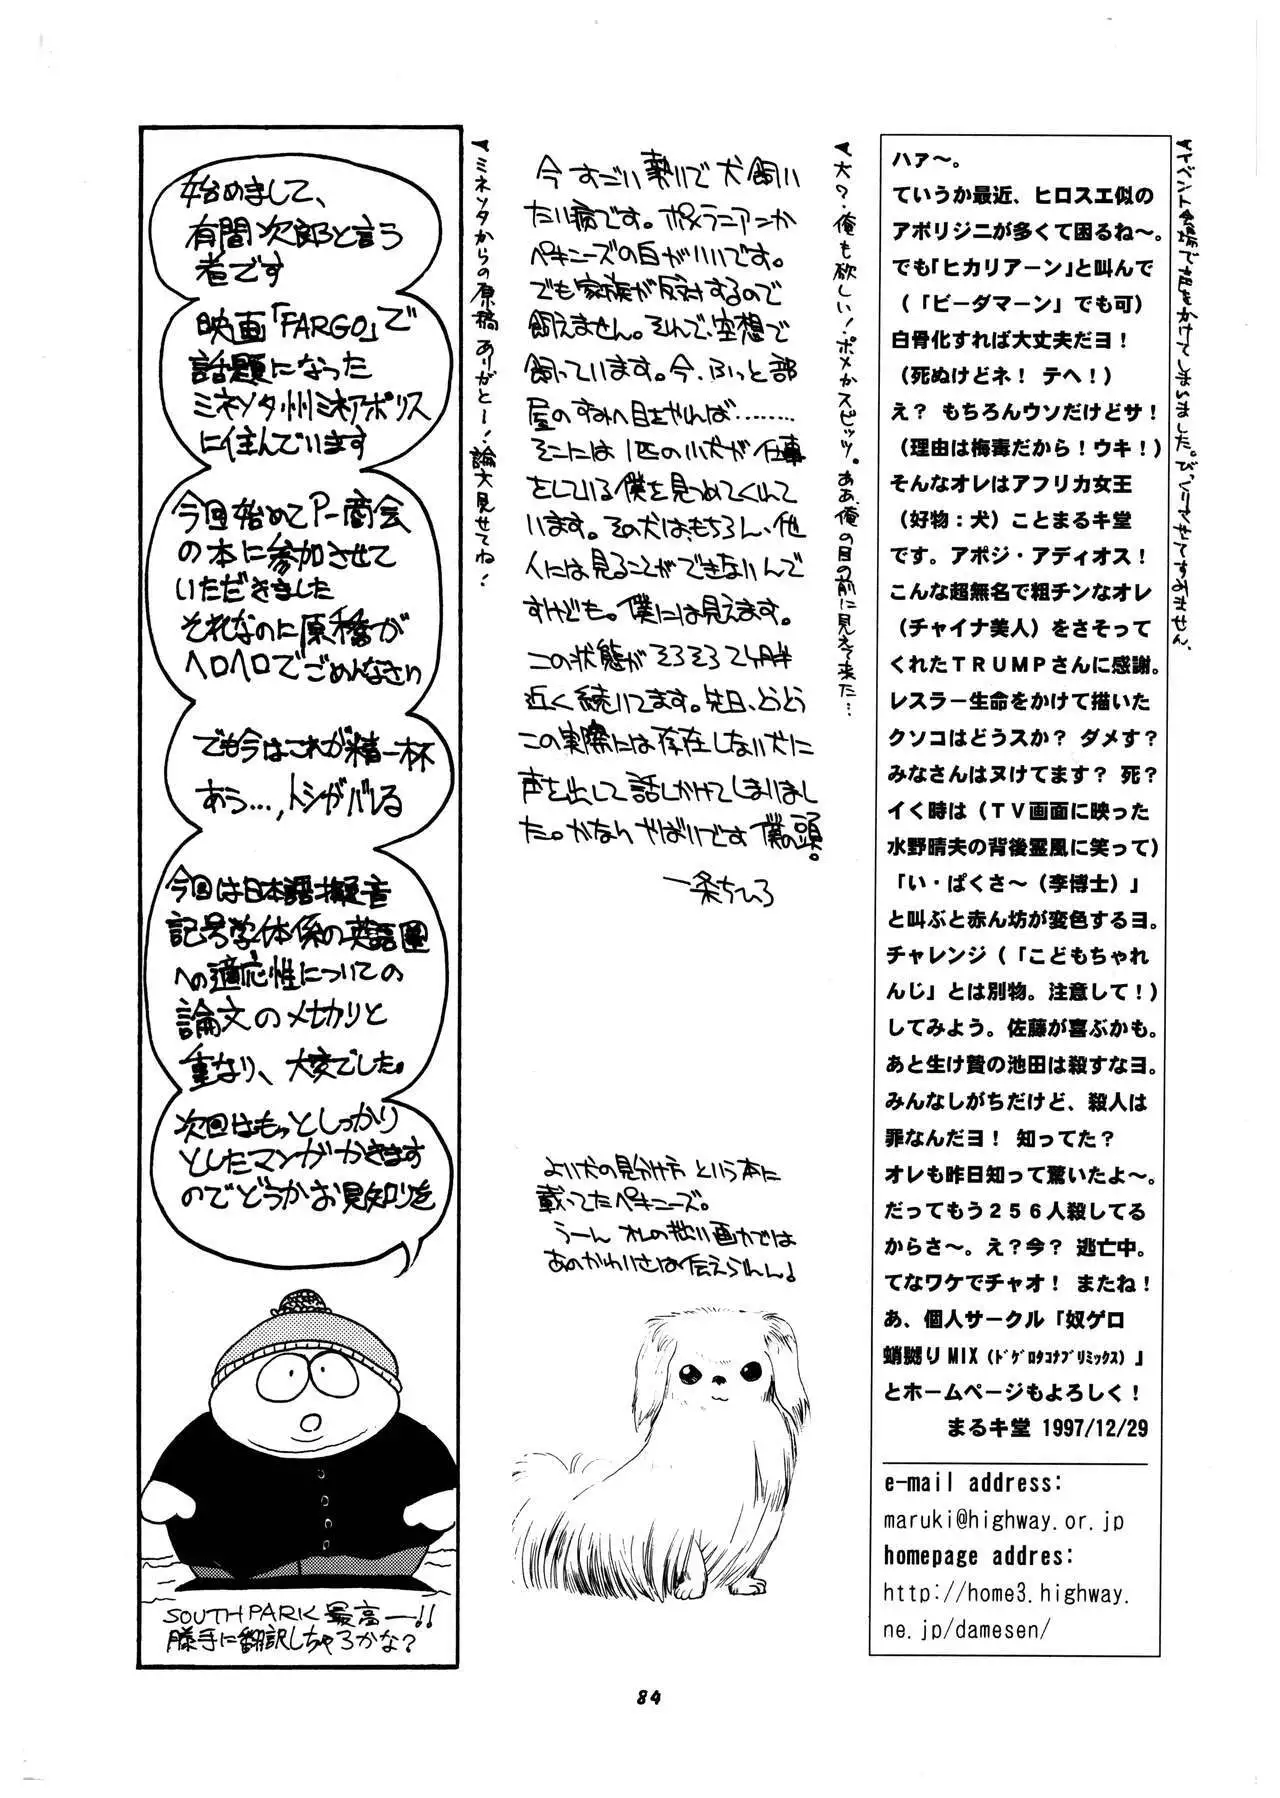 ▼イベント会場で声をかけてしまいました。びっくりさせてすみません、
ハァ〜。
ていうか最近、ヒロスエ似の
アボリジニが多くて困るね〜。
でも「ヒカリアーン」と叫んで
（「ビーダマーン」でも可）
白骨化すれば大丈夫だヨ！
（死ぬけどネ！ テヘ！）
え？ もちろんウソだけどサ！
（理由は梅毒だから！ウキ！）
そんなオレはアフリカ女王
（好物：犬）ことまるキ堂
です。アポジ・アディオス！
こんな超無名で粗チンなオレ
（チャイナ美人）をさそって
くれたＴＲＵＭＰさんに感謝。
レスラー生命をかけて描いた
クソコはどうスか？ ダメす？
みなさんはヌけてます？ 死？
イく時は（ＴＶ画面に映った
水野晴夫の背後霊風に笑って）
「い・ぱくさ〜（李博士）」
と叫ぶと赤ん坊が変色するヨ。
チャレンジ（「こどもちゃれ
んじ」とは別物。注意して！）
してみよう。佐藤が喜ぶかも。
あと生け贄の池田は殺すなヨ。
みんなしがちだけど、殺人は
罪なんだヨ！ 知ってた？
オレも昨日知って驚いたよ〜。
だってもう２５６人殺してる
からさ〜。え？今？ 逃亡中。
てなワケでチャオ！ またね！
あ、個人サークル「奴ゲロ
蛸嬲りMIX（ﾄﾞｹﾞﾛﾀｺﾅﾌﾞﾘﾐｯｸｽ）」
とホームページもよろしく！
まるキ堂 1997/12/29
e-mail address:
maruki@highway.or.jp
homepage addres:
http://home3.highway.
ne.jp/damesen/
▼犬？・俺も欲しい！ポメかスピッツ。ああ、俺の目の前に見えて来た…
今 すごい勢いで犬飼い
たい病です。ポメラニアンか
ペキニーズの白がいいです。
でも家族が反対するので
飼えません。それで、空想で
飼っています。今、ふっと部
屋のすみへ目をやれば………
そこには１匹の小犬が仕事
をしている僕を見つめてくれて
います。その犬は、もちろん、他
人には見ることができないんで
すけども。僕には見えます。
この状態がそろそろ２ヶ月半
近く続いてます。先日、とうとう
この実際には存在しない犬に
声を出して話しかけてしまいまし
た。かなりやばいです僕の頭。
一条ちひろ
よい犬の見分け方 という本に
載ってたペキニーズ。
うーん オレの拙い画力では
あのかわいさは伝えられん！
▼ミネソタからの原稿ありがとー！論文見せてね！
始めまして、
有間次郎と言う
者です
映画「FARGO」で
話題になった
ミネソタ州ミネアポリス
に住んでいます
今回始めてP-商会
の本に参加させて
いただきました
それなのに原稿が
ヘロヘロでごめんなさい
でも今はこれが精一杯
あう…,トシがバレる
今回は日本語擬音
記号学体係の英語圏
への適応性についての
論文のメ切りと
重なり、大変でした。
次回はもっとしっかり
としたマンガかきます
のでどうかお見知りを
SOUTH PARK 最高ー!!
勝手に翻訳しちゃろかな？
84